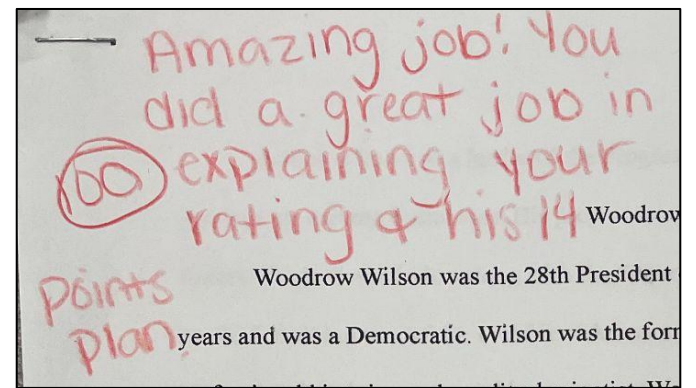 Amazing job! You
did a great job in
100 explaining your
rating & his 14 Woodrow
points Woodrow Wilson was the 28th President
plan years and was a Democratic. Wilson was the